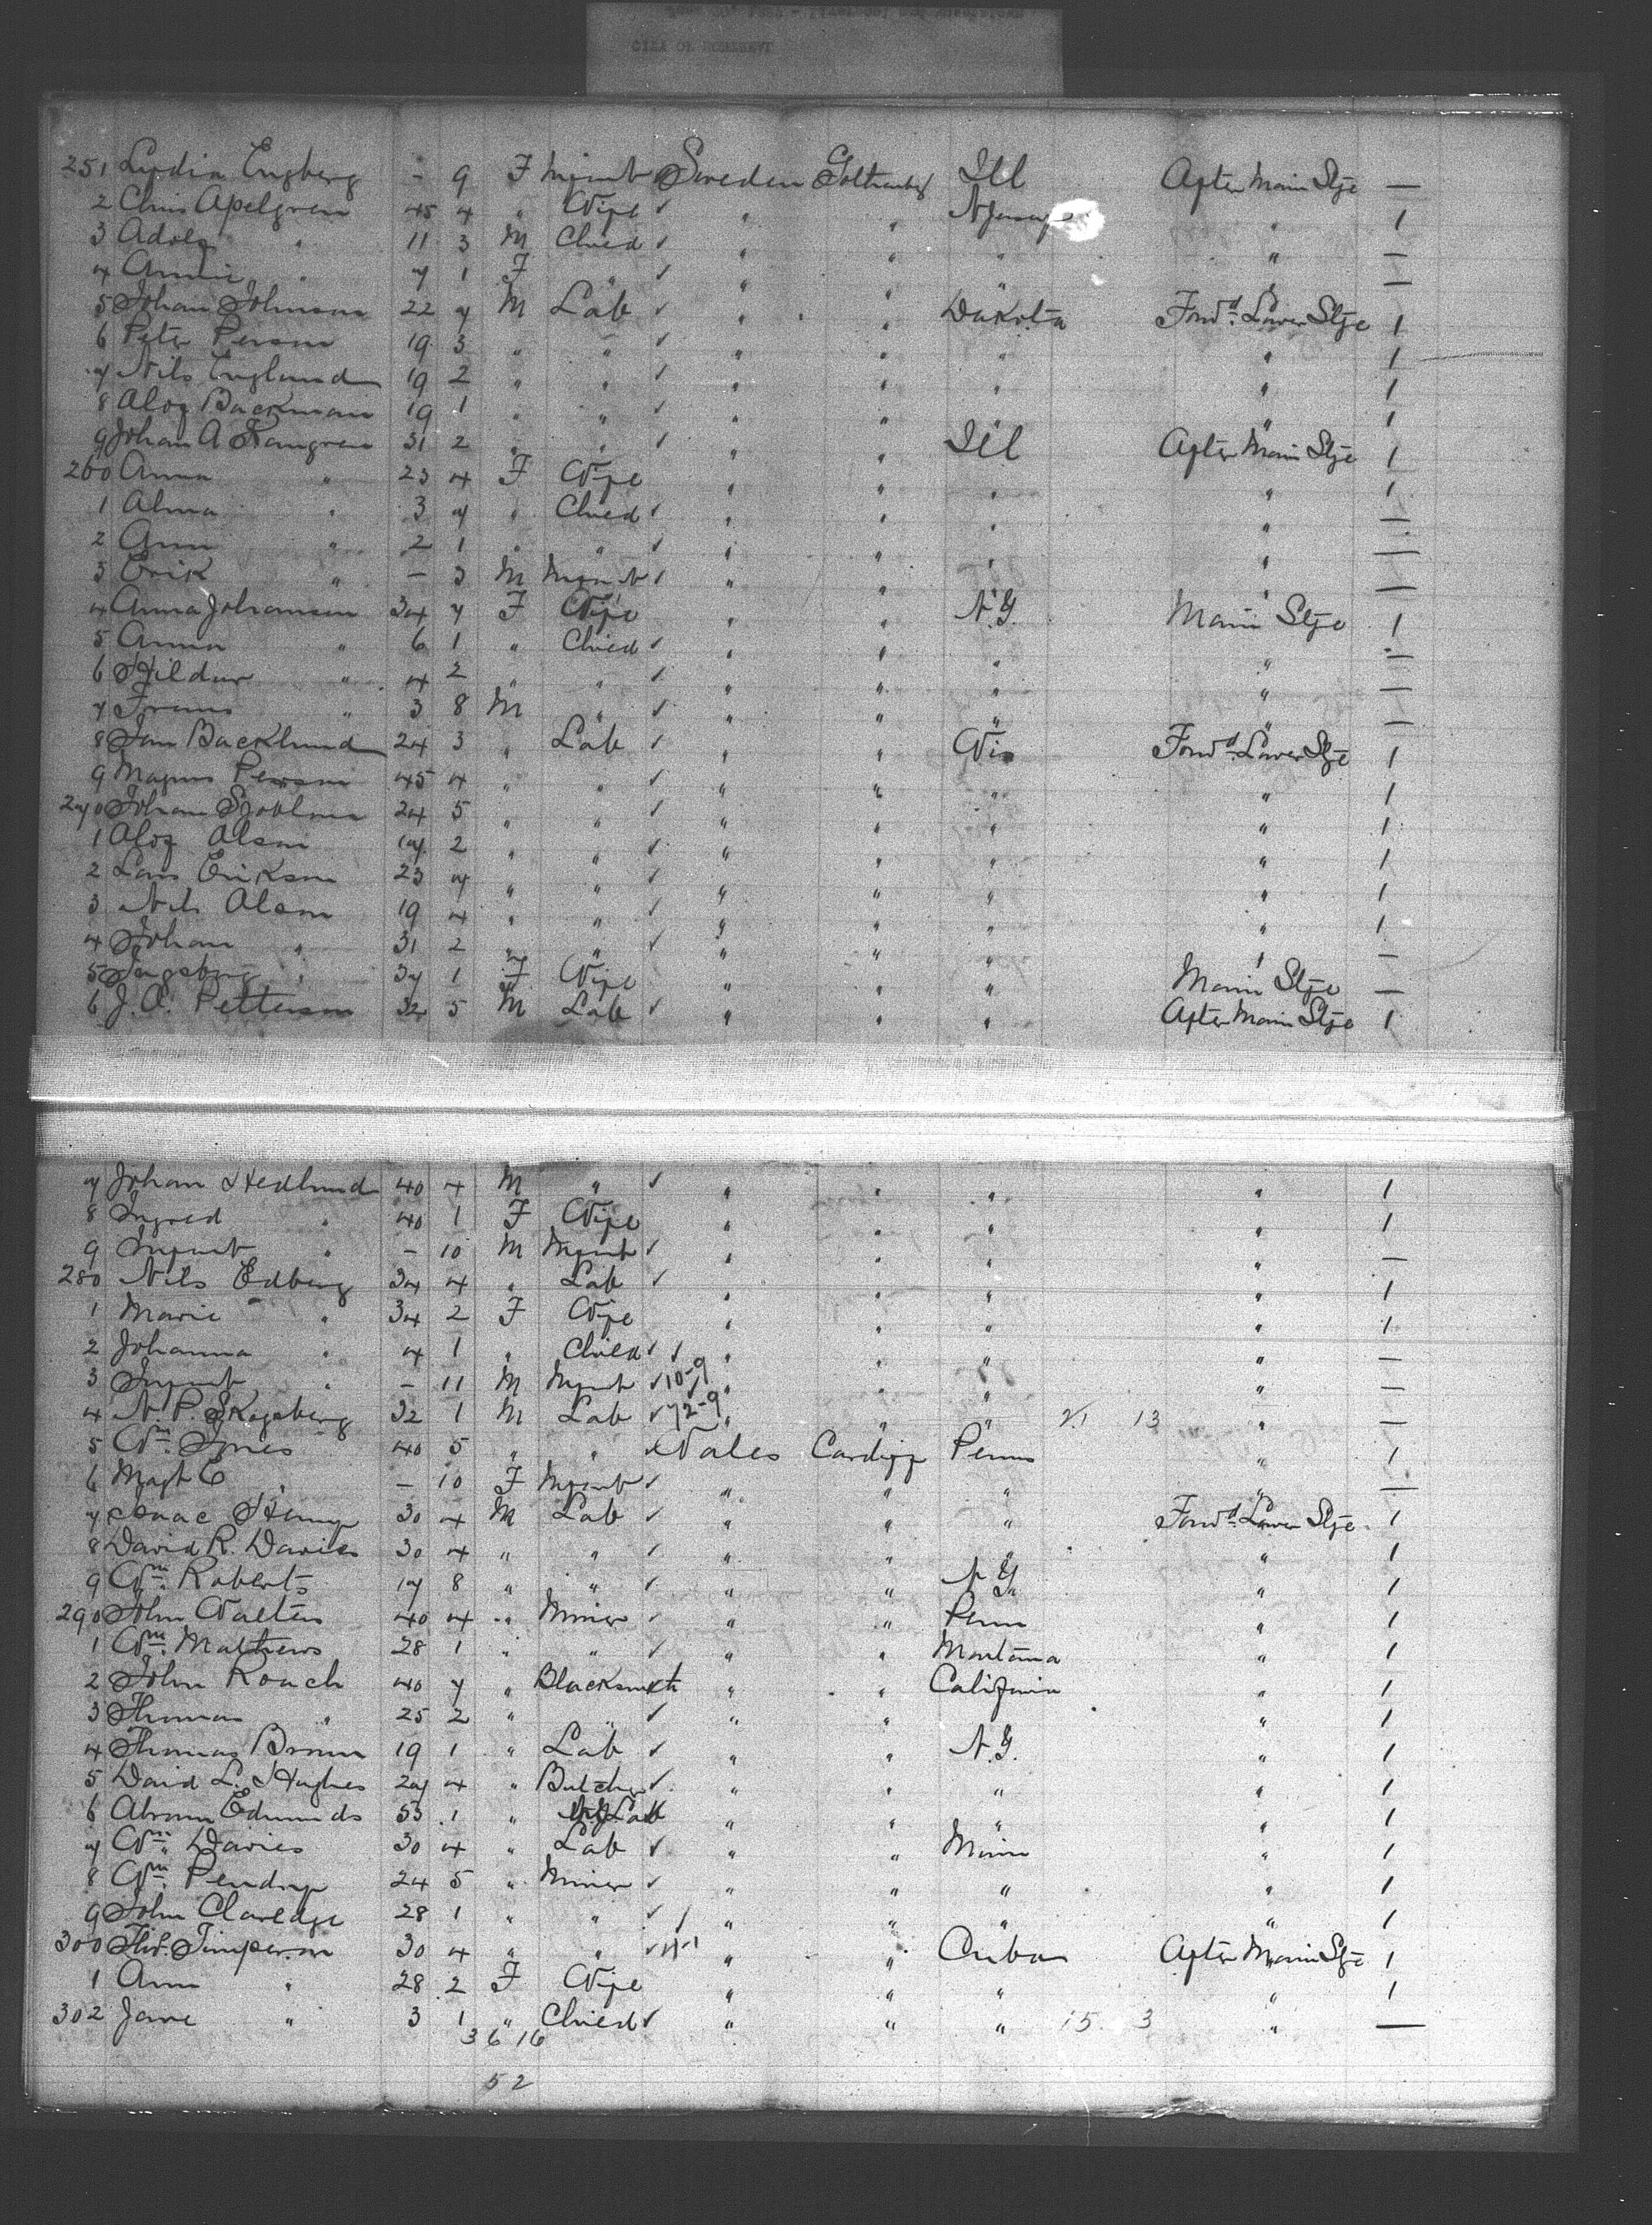 CITY OF SOMERSET
251 Lydia Engberg - 9 F Infant Sweden Gothenbg Ill After Main Stge —
2 Chris Apelgren 45 4 " Wife " " N Jersey " 1
3 Adolf " 11 3 M Child " " " " —
4 Annie " 7 1 F " " " " " —
5 Johan Johnson 22 7 M Lab " " Dakota Forwd Lower Stge 1
6 Peter Person 19 3 " " " " " " 1
7 Nils Englund 19 2 " " " " " " 1
8 Alof Backman 19 1 " " " " " " 1
9 Johan A 31 2 " " " " Ill After Main Stge 1
260 Anna " 23 4 F Wife " " " " 1
1 Alma " 3 7 " Child " " " " —
2 Ann " 2 1 " " " " " " —
3 Erik " - 3 M Infant " " " " —
4 Anna Johanson 34 7 F Wife " " N.Y. Main Stge 1
5 Anna " 6 1 " Child " " " " —
6 Hildur " 4 2 " " " " " " —
7 Frans " 3 8 M " " " " " —
8 Jan Backlund 24 3 " Lab " " Wis Forwd Lower Stge 1
9 Magnus Person 45 4 " " " " " " 1
270 Johan 24 5 " " " " " " 1
1 Alof Olson 17 2 " " " " " " 1
2 Lars Erikson 23 7 " " " " " " 1
3 Nils Olson 19 4 " " " " " " 1
4 Johan " 31 2 " " " " " " —
5 Ingeborg " 37 1 F Wife " " " Main Stge —
6 J. A. Petterson 32 5 M Lab " " " After Main Stge 1
7 Johan Hedlund 40 4 M " " " " " 1
8 Ingred " 40 1 F Wife " " " " 1
9 Infant " - 10 M Infant " " " " —
280 Nils Edberg 34 4 " Lab " " " " 1
1 Marie " 34 2 F Wife " " " " 1
2 Johanna " 4 1 " Child " " " " —
3 Infant " - 11 M Infant 10-9 " " " " —
4 N. P. Skogsberg 32 1 M Lab 72-9 " " " 21 13 " —
5 Wm Jones 40 5 " " Wales Cardiff Penns " 1
6 Magt E " - 10 F Infant " " " " —
7 Isaac Hemp 30 4 M Lab " " " Forwd Lower Stge 1
8 David R. Davies 30 4 " " " " " " 1
9 Wm Roberts 17 8 " " " " N.Y. " 1
290 John Walters 40 4 " Miner " " Penn " 1
1 Wm Mathews 28 1 " " " " Montana " 1
2 John Roach 40 7 " Blacksmith " " California " 1
3 Thomas " 25 2 " " " " " " 1
4 Thomas Brown 19 1 " Lab " " N.Y. " 1
5 David L. Hughes 27 4 " Butcher " " " " 1
6 Abram Edmunds 53 1 " Lab " " " " 1
7 Wm Davies 30 4 " Lab " " Minn " 1
8 Wm Pendry 24 5 " Miner " " " " 1
9 John Claredge 28 1 " " " " " " 1
300 Thos. Timperson 30 4 " " 11-1 " " Cuba After Main Stge 1
1 Ann " 28 2 F Wife " " " " 1
302 Jane " 3 1 " Child " " " 15 3 " —
36 16
52